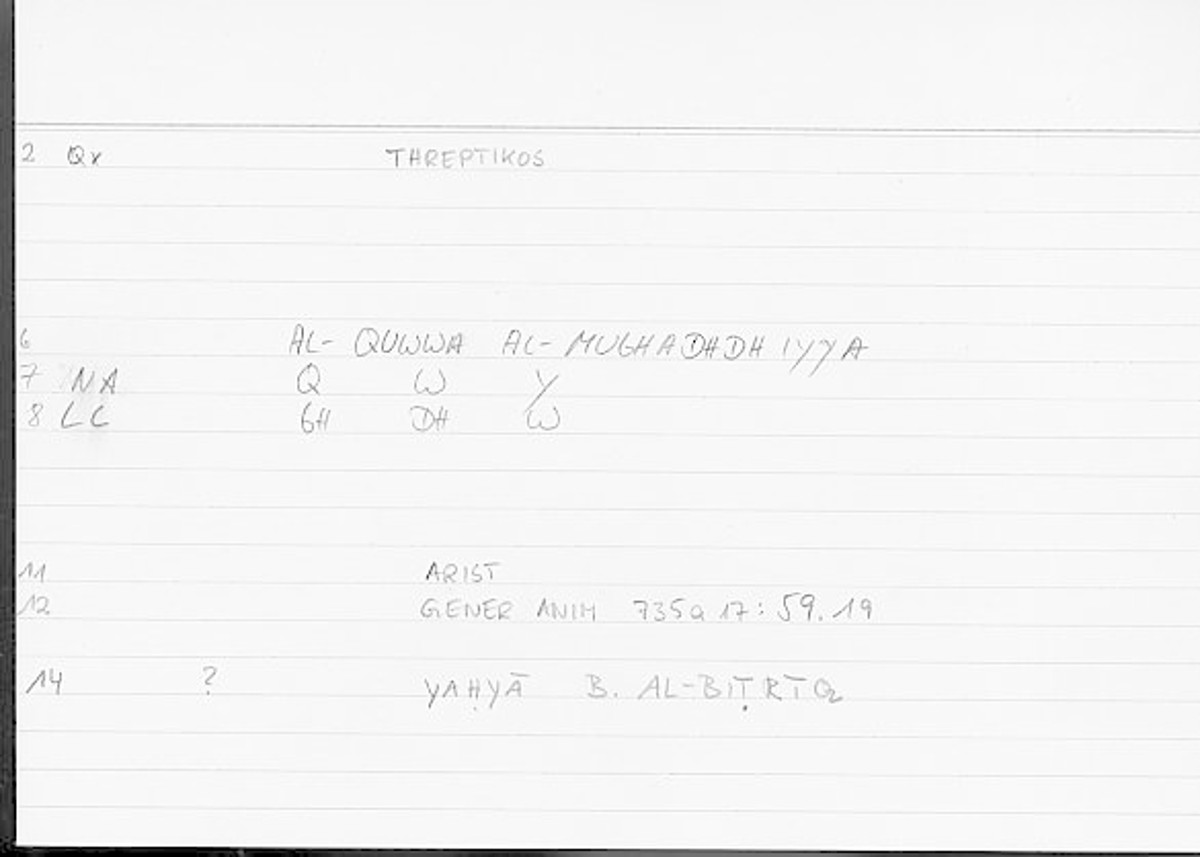 2 Qx THREPTIKOS
6 AL- QUWWA AL- MUGHADHDHIYYA
7 NA Q W Y
8 LC GH DH W
11 ARIST
12 GENER ANIM 735a 17: 59.19
14 ? YAḤYĀ B. AL-BIṬRĪQ